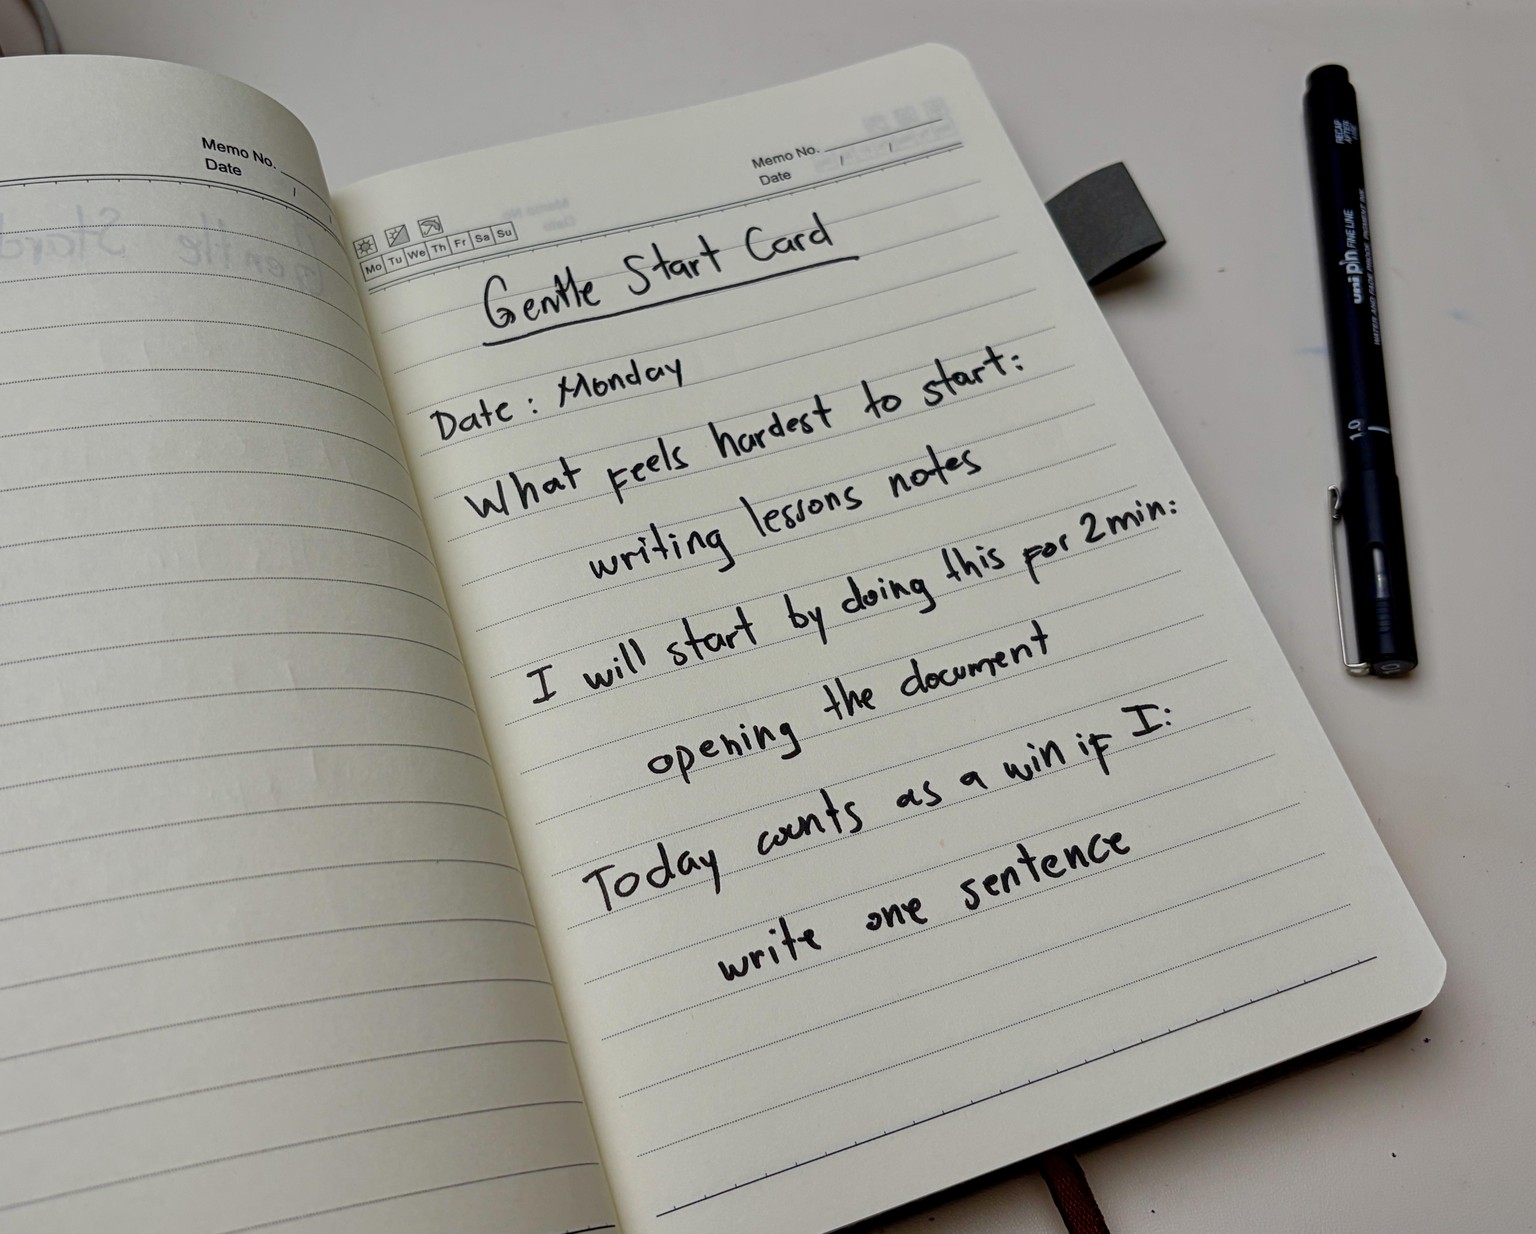 Memo No.
Date / /
Gentle Stard
Memo No.
Date / /
Mo Tu We Th Fr Sa Su
Gentle Start Card
Date : Monday
What feels hardest to start:
writing lessons notes
I will start by doing this for 2min:
opening the document
Today counts as a win if I:
write one sentence
RECAP AFTER USE
uni pin FINE LINE
WATER AND FADE PROOF PIGMENT INK
1.0